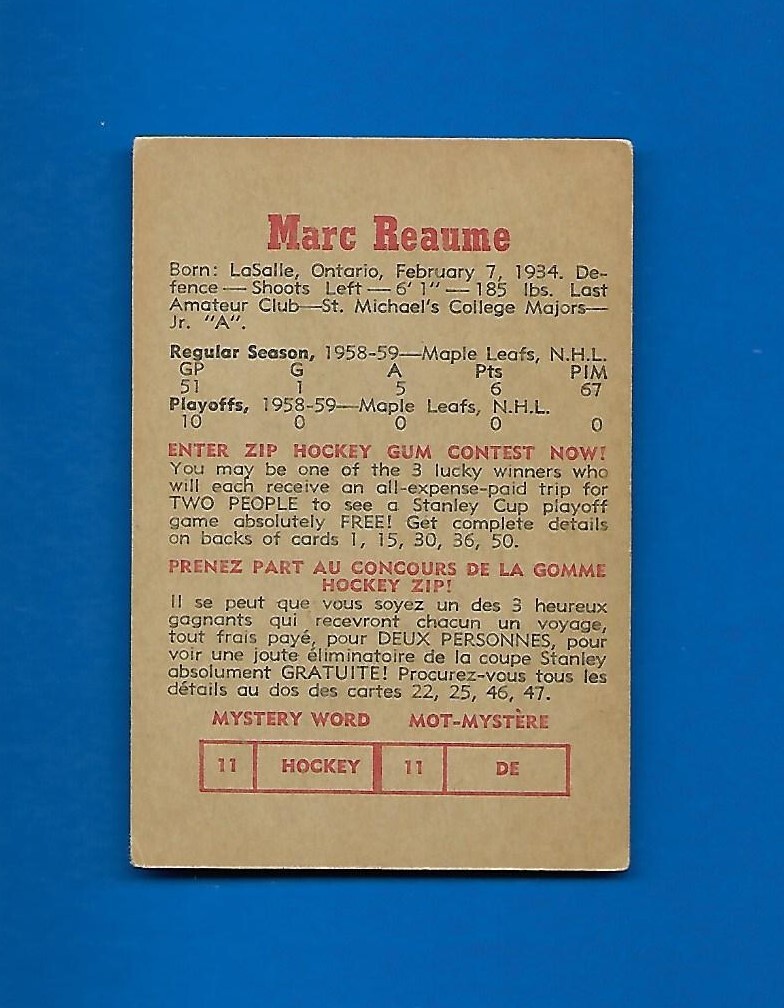 Marc Reaume
Born: LaSalle, Ontario, February 7, 1934. De-
fence — Shoots Left — 6' 1" — 185 lbs. Last
Amateur Club—St. Michael's College Majors—
Jr. "A".
Regular Season, 1958-59—Maple Leafs, N.H.L.
GP G A Pts PIM
51 1 5 6 67
Playoffs, 1958-59—Maple Leafs, N.H.L.
10 0 0 0 0
ENTER ZIP HOCKEY GUM CONTEST NOW!
You may be one of the 3 lucky winners who
will each receive an all-expense-paid trip for
TWO PEOPLE to see a Stanley Cup playoff
game absolutely FREE! Get complete details
on backs of cards 1, 15, 30, 36, 50.
PRENEZ PART AU CONCOURS DE LA GOMME
HOCKEY ZIP!
Il se peut que vous soyez un des 3 heureux
gagnants qui recevront chacun un voyage,
tout frais payé, pour DEUX PERSONNES, pour
voir une joute éliminatoire de la coupe Stanley
absolument GRATUITE! Procurez-vous tous les
détails au dos des cartes 22, 25, 46, 47.
MYSTERY WORD MOT-MYSTÈRE
11 HOCKEY 11 DE